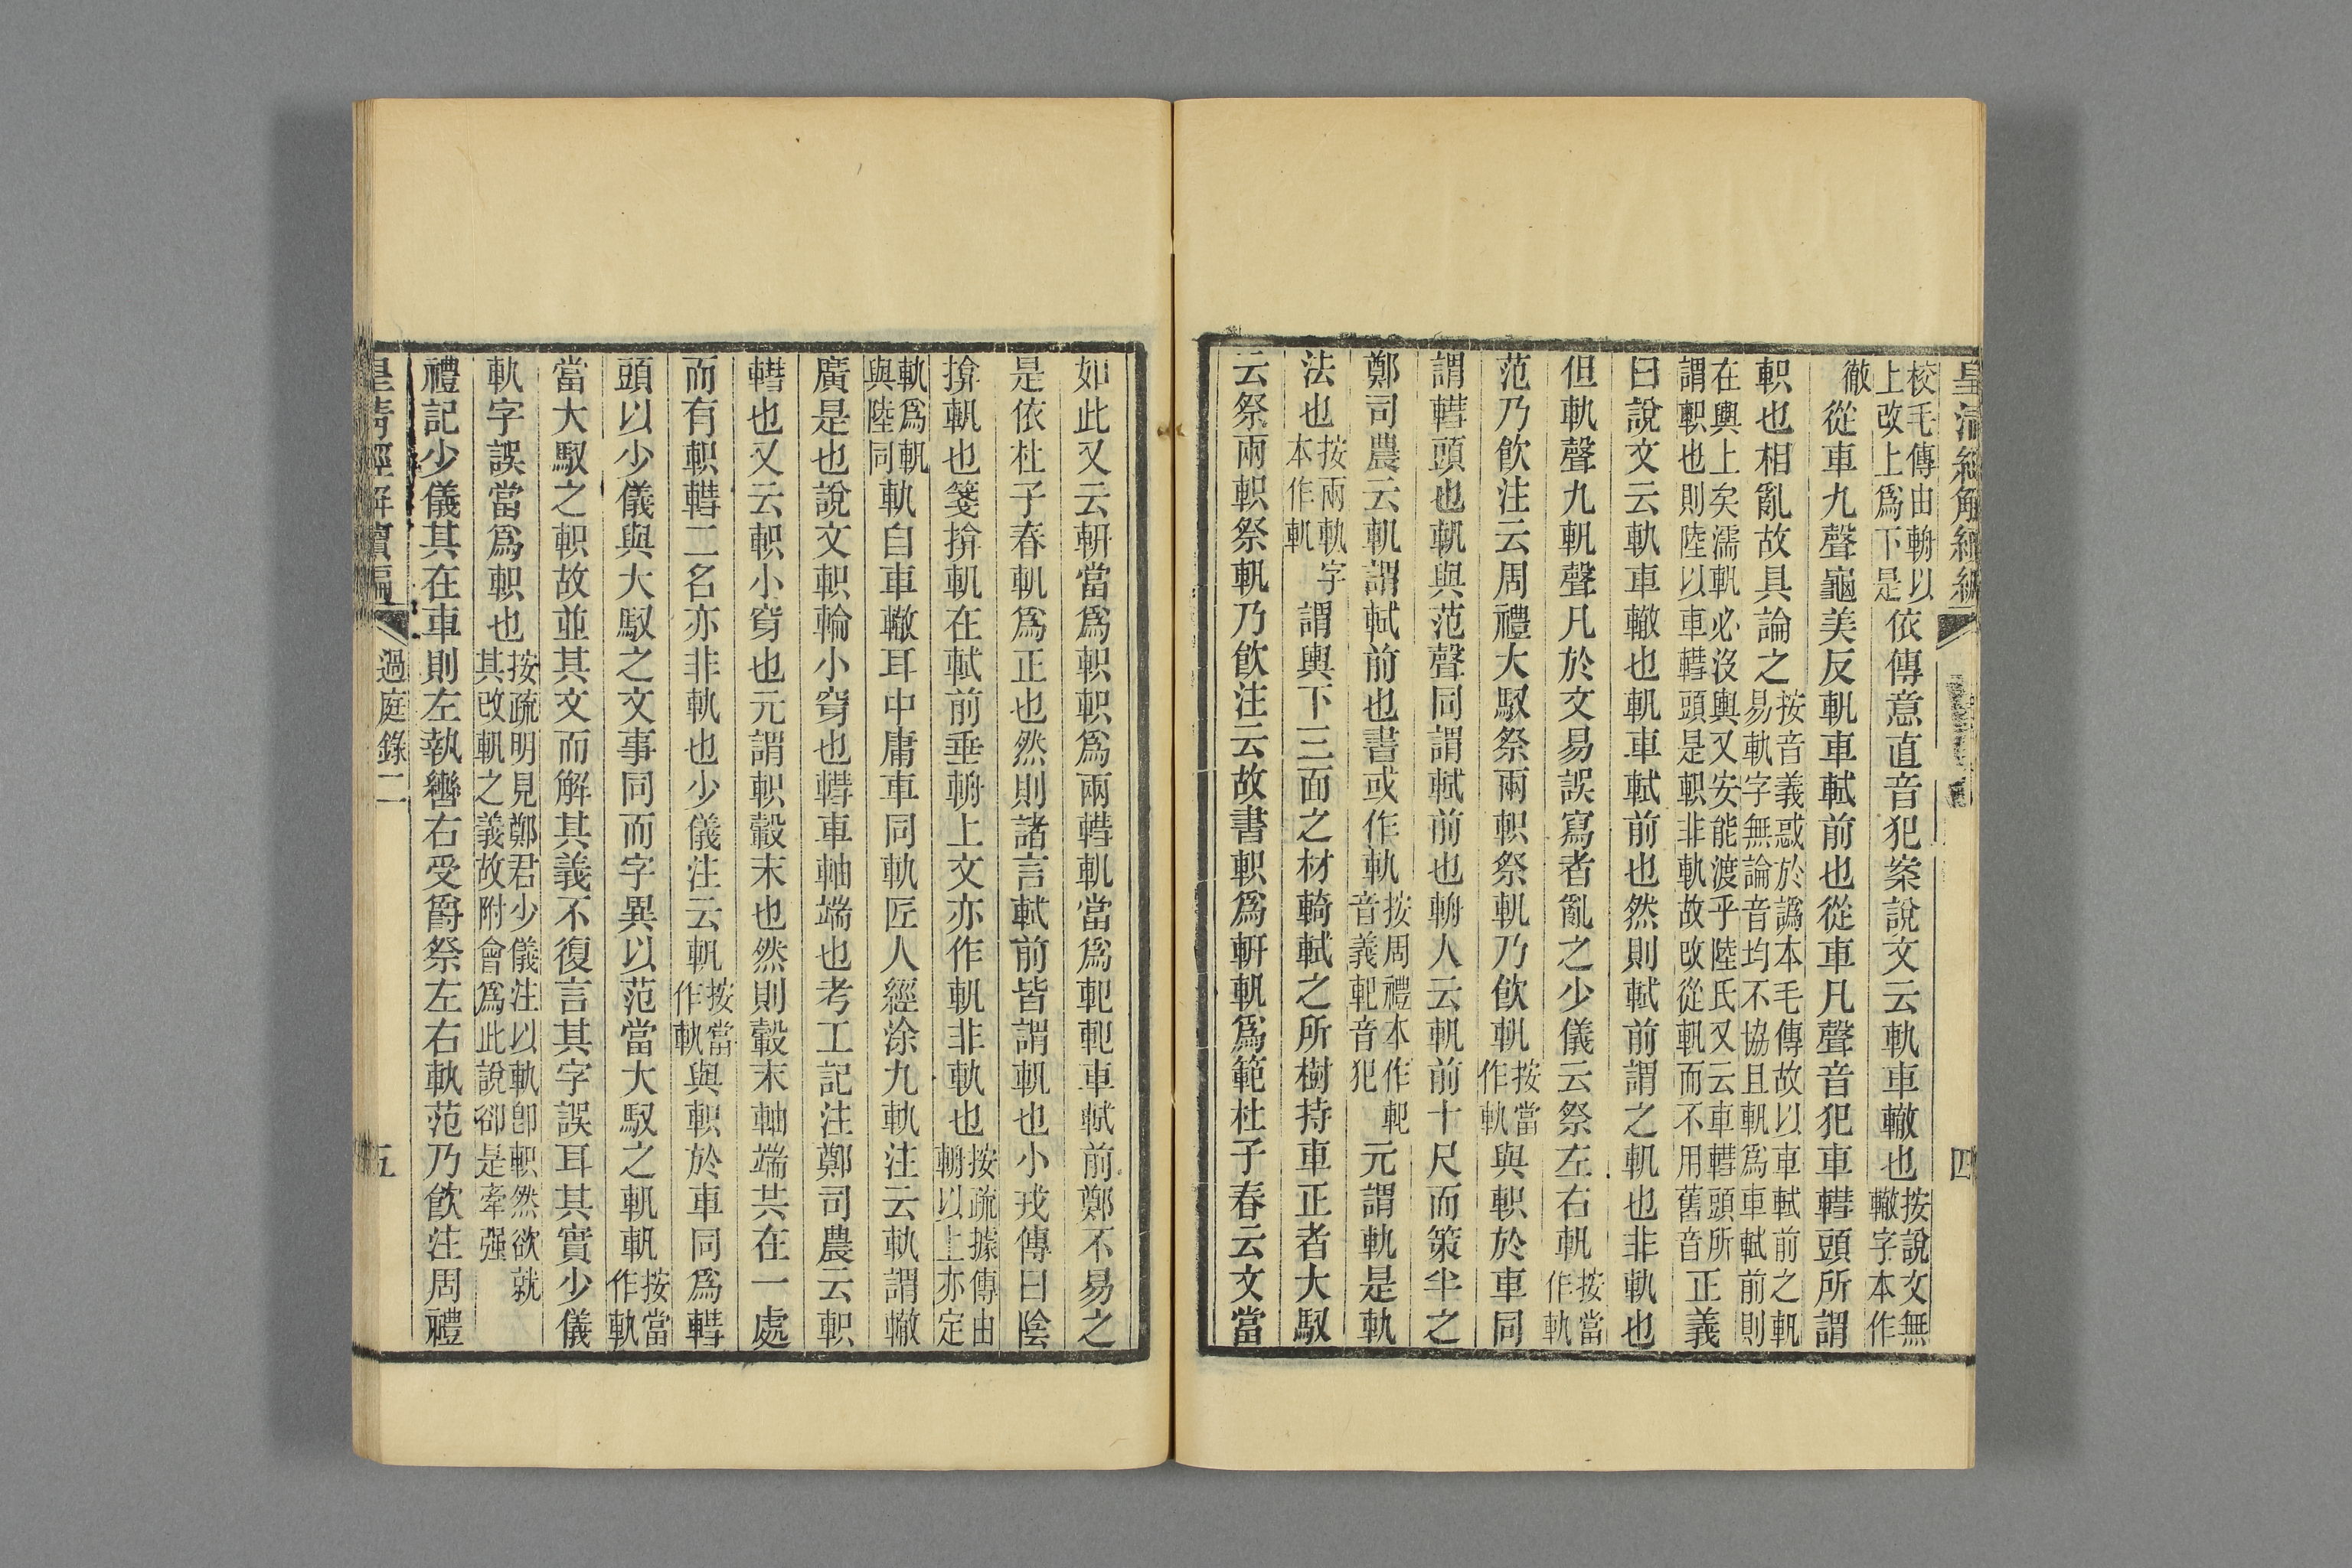 皇清經解續編
四
校毛傳由輈以
上改上爲下是
依傳意直音犯案說文云軌車轍也
按說文無
轍字本作
徹
從車九聲龜美反軓車軾前也從車凡聲音犯車轊頭所謂
軹也相亂故具論之
按音義惑於譌本毛傳故以車軾前之軓
易軌字無論音均不協且軓爲車軾前則
在輿上矣濡軓必沒輿輿又安能渡乎陸氏又云車轊頭所
謂軹也則陸以車轊頭是軹非軌故改從軓而不用舊音
正義
曰說文云軌車轍也軓車軾前也然則軾前謂之軓也非軌也
但軌聲九軓聲凡於文易誤寫者亂之少儀云祭左右軓
按當
作軌
范乃飲注云周禮大馭祭兩軹祭軓乃飲軓
按當
作軌
與軹於車同
謂轊頭也軓與范聲同謂軾前也輈人云軓前十尺而策半之
鄭司農云軓謂軾前也書或作軌
按周禮本作軶
音義軶音犯
元謂軌是軌
法也
按兩軌字
本作軓
謂輿下三面之材輢軾之所樹持車正者大馭
云祭兩軹祭軓乃飲注云故書軹爲軒軓爲範杜子春云文當
如此又云軒當爲軹軹爲兩轊軓當爲軶軶車軾前鄭不易之
是依杜子春軓爲正也然則諸言軾前皆謂軓也小戎傳曰陰
揜軓也箋揜軓在軾前垂輈上文亦作軓非軌也
按疏據傳由
輈以上亦定
軌爲軓
與陸同
軌自車轍耳中庸車同軌匠人經涂九軌注云軌謂轍
廣是也說文軹輪小穿也轊車軸端也考工記注鄭司農云軹
轊也又云軹小穿也元謂軹轂末也然則轂末軸端共在一處
而有軹轊二名亦非軌也少儀注云軓
按當
作軌
與軹於車同爲轊
頭以少儀與大馭之文事同而字異以范當大馭之軓軓
按當
作軌
當大馭之軹故並其文而解其義不復言其字誤耳其實少儀
軌字誤當爲軹也
按疏明見鄭君少儀注以軌卽軹然欲就
其改軓之義故附會爲此說卻是牽强
禮記少儀其在車則左執轡右受爵祭左右軌范乃飲注周禮
皇清經解續編
過庭錄二
五